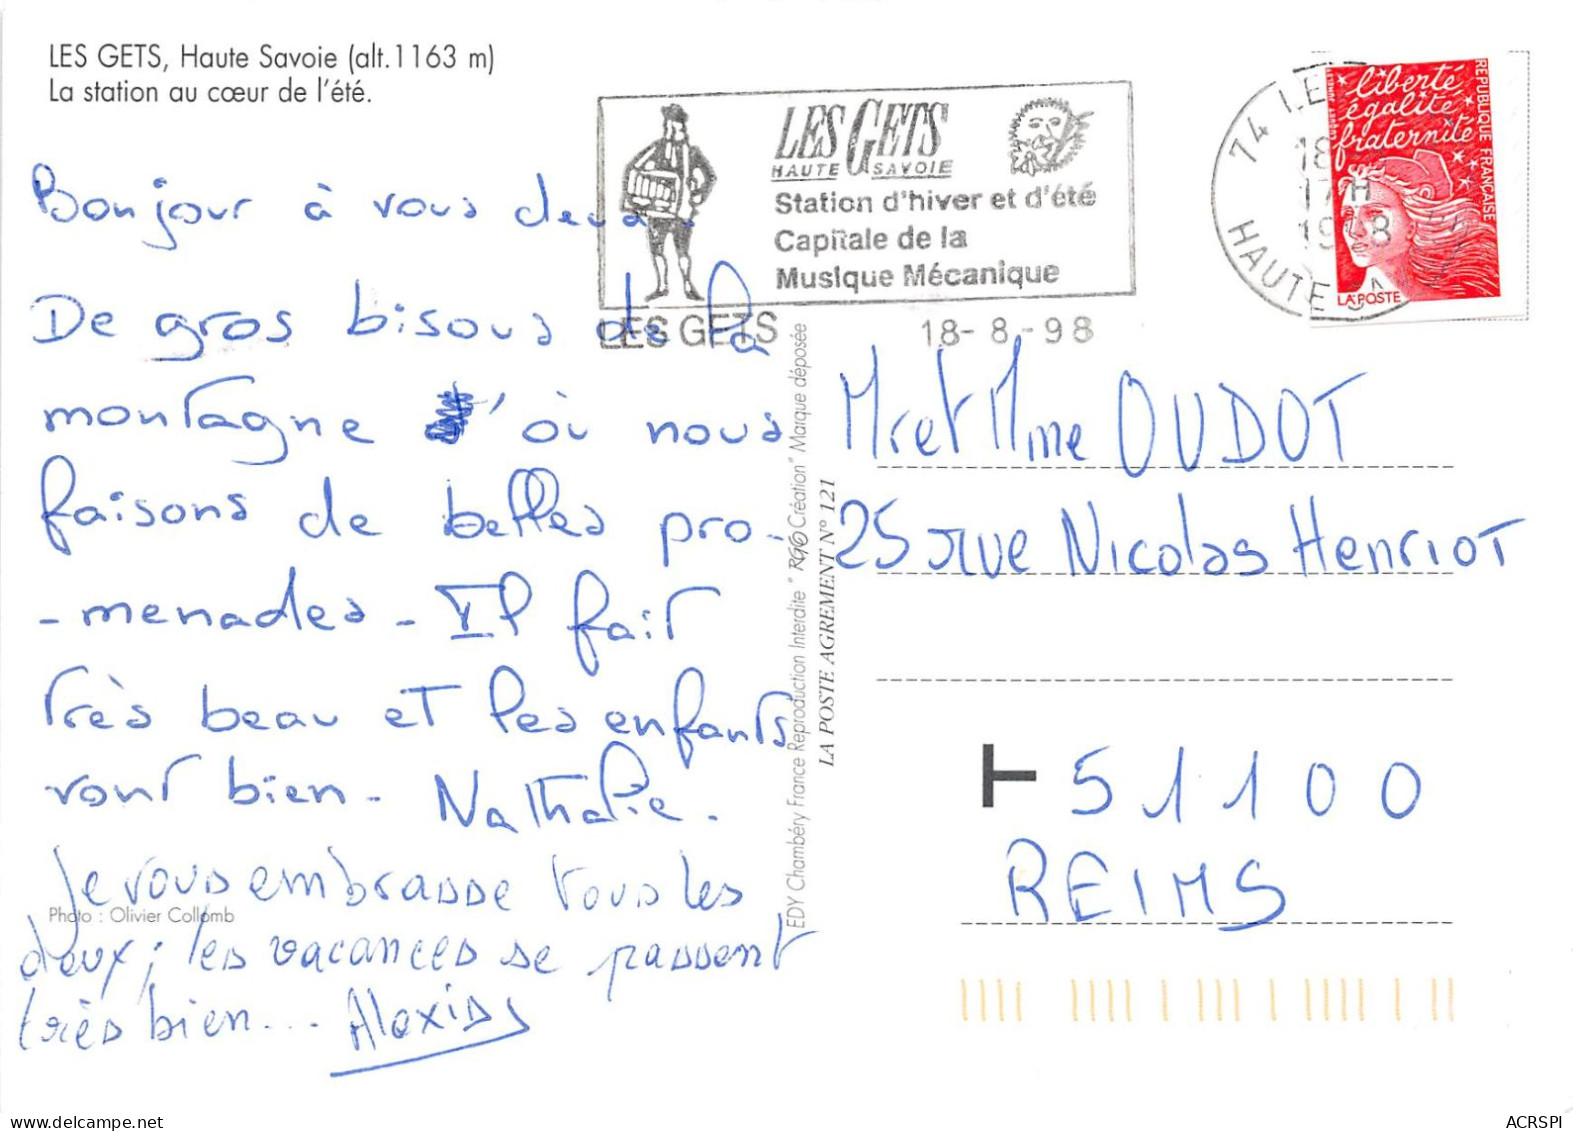 LES GETS, Haute Savoie (alt.1163 m)
La station au cœur de l'été.
LES GETS
HAUTE SAVOIE
Station d'hiver et d'été
Capitale de la
Musique Mécanique
LES GETS 18-8-98
74 LE
18
17H
1998
HAUTE
liberté
égalité
fraternité
REPUBLIQUE FRANÇAISE
LA POSTE
Bonjour à vous deux.
De gros bisous de la
montagne où nous
faisons de belles pro-
-menades - Il fait
très beau et les enfants
vont bien - Nathalie.
Je vous embrasse tous les
deux ; les vacances se passent
très bien... Alexis
Photo : Olivier Collomb
EDY Chambéry France Reproduction Interdite "RGO Création" Marque déposée
LA POSTE AGREMENT N° 121
Mr et Mme OUDOT
25 rue Nicolas Henriot
T 51100
REIMS
www.delcampe.net
ACRSPI